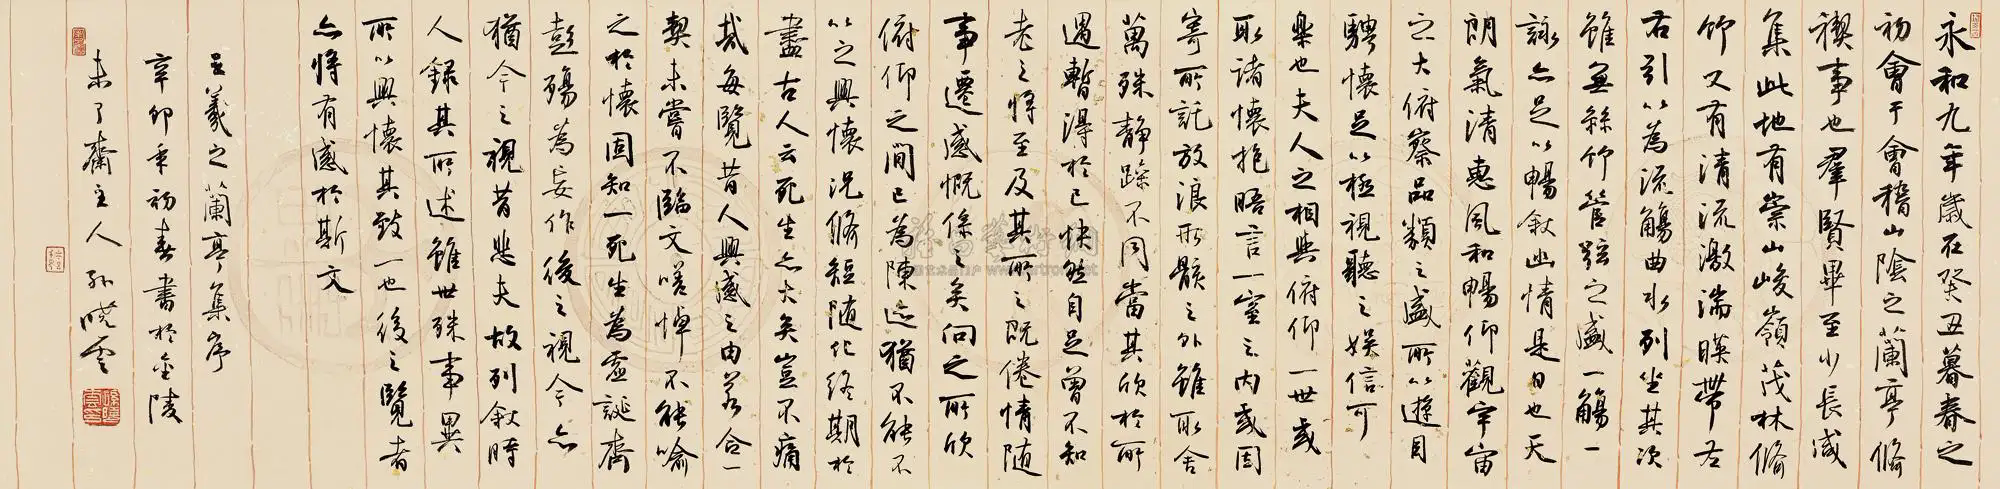 永和九年歲在癸丑暮春之
初會于會稽山陰之蘭亭脩
禊事也羣賢畢至少長咸
集此地有崇山峻嶺茂林脩
竹又有清流激湍暎帶左
右引以為流觴曲水列坐其次
雖無絲竹管弦之盛一觴一
詠亦足以暢叙幽情是日也天
朗氣清惠風和暢仰觀宇宙
之大俯察品類之盛所以遊目
騁懷足以極視聽之娛信可
樂也夫人之相與俯仰一世或
取諸懷抱晤言一室之內或因
寄所託放浪形骸之外雖取舍
萬殊靜躁不同當其欣於所
遇暫得於己快然自足曾不知
老之將至及其所之既倦情隨
事遷感慨係之矣向之所欣
俯仰之間已為陳迹猶不能不
以之興懷況脩短隨化終期於
盡古人云死生亦大矣豈不痛
哉每覽昔人興感之由若合一
契未嘗不臨文嗟悼不能喻
之於懷固知一死生為虛誕齊
彭殤為妄作後之視今亦
猶今之視昔悲夫故列叙時
人錄其所述雖世殊事異
所以興懷其致一也後之覽者
亦將有感於斯文
王羲之蘭亭集序
辛卯年初春書於金陵
未了齋主人孫曉雲